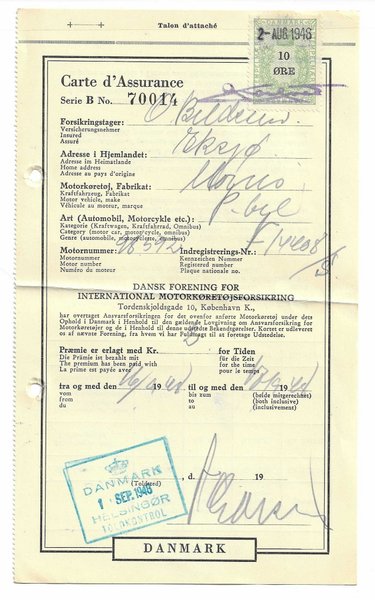 Talon d'attaché
DANMARK
2-AUG.1948
10
ØRE
Carte d'Assurance
Serie B No. 70014
Forsikringstager:
Versicherungsnehmer
Insured
Assuré
Adresse i Hjemlandet: Eksjö
Adresse im Heimatlande
Home address
Adresse au pays d'origine
Motorkøretøj, Fabrikat: Morris
Kraftfahrzeug, Fabrikat
Motor vehicle, make
Véhicule au moteur, marque
Art (Automobil, Motorcykle etc.): P-bil
Kategorie (Kraftwagen, Kraftfahrrad, Omnibus)
Category (motor car, motor cycle, omnibus)
Genre (automobile, motocyclette, omnibus)
Motornummer: Indregistrerings-Nr.:
Motornummer Kennzeichen Nummer
Motor number Registered number
Numéro du moteur Plaque nationale no.
DANSK FORENING FOR
INTERNATIONAL MOTORKØRETØJSFORSIKRING
Tordenskjoldsgade 10, København K.,
har overtaget Ansvarsforsikringen for det ovenfor anførte Motorkøretøj under dets
Ophold i Danmark i Henhold til den gældende Lovgivning om Ansvarsforsikring for
Motorkøretøjer og de i Henhold til denne udstedte Bekendtgørelser. Kortet er udleveret
os af nævnte Forening, for hvem vi er Fuldmægtig til at foretage Udstedelse.
Præmie er erlagt med Kr. for Tiden
Die Prämie ist bezahlt mit für die Zeit
The premium has been paid with for the time
La prime est payée avec pour le temps
fra og med den 19 til og med den 19
vom bis zum (beide mitgerechnet)
from to (both inclusive)
du au (inclusivement)
DANMARK
1 SEP. 1948
HELSINGØR
TOLDKONTROL
(Toldsted) , d. 19
DANMARK